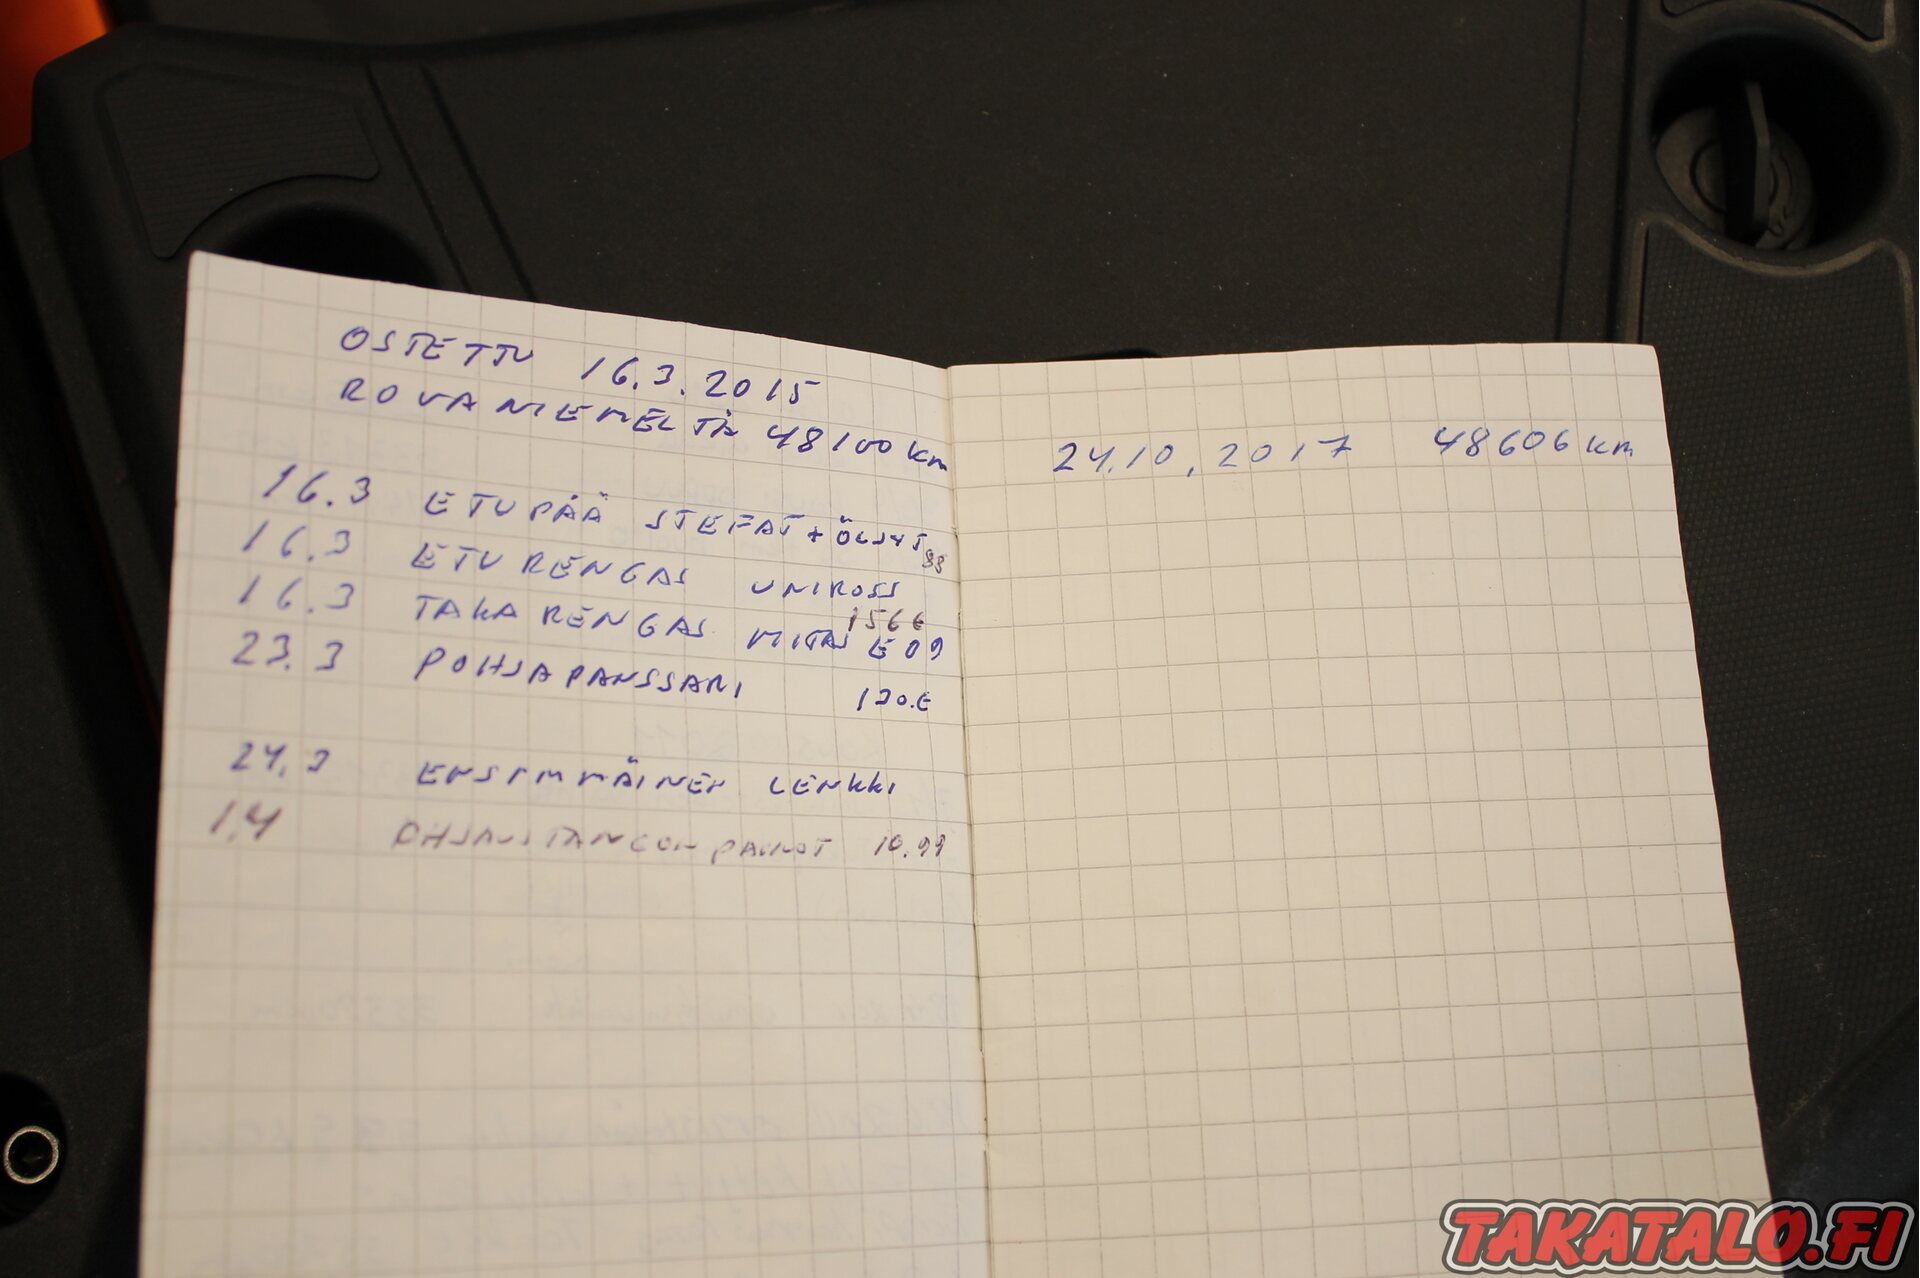 OSTETTU 16.3.2015
ROVANIEMELTÄ 48100 km
16.3 ETUPÄÄ STEFAT + ÖLJYT 98
16.3 ETURENGAS UNIROSS
156€
16.3 TAKARENGAS MITAS E09
23.3 POHJAPANSSARI 120.€
24.3 ENSIMMÄINEN LENKKI
1.4 OHJAUSTANGON PAINOT 10.99
24.10.2017 48606 km
TAKATALO.FI